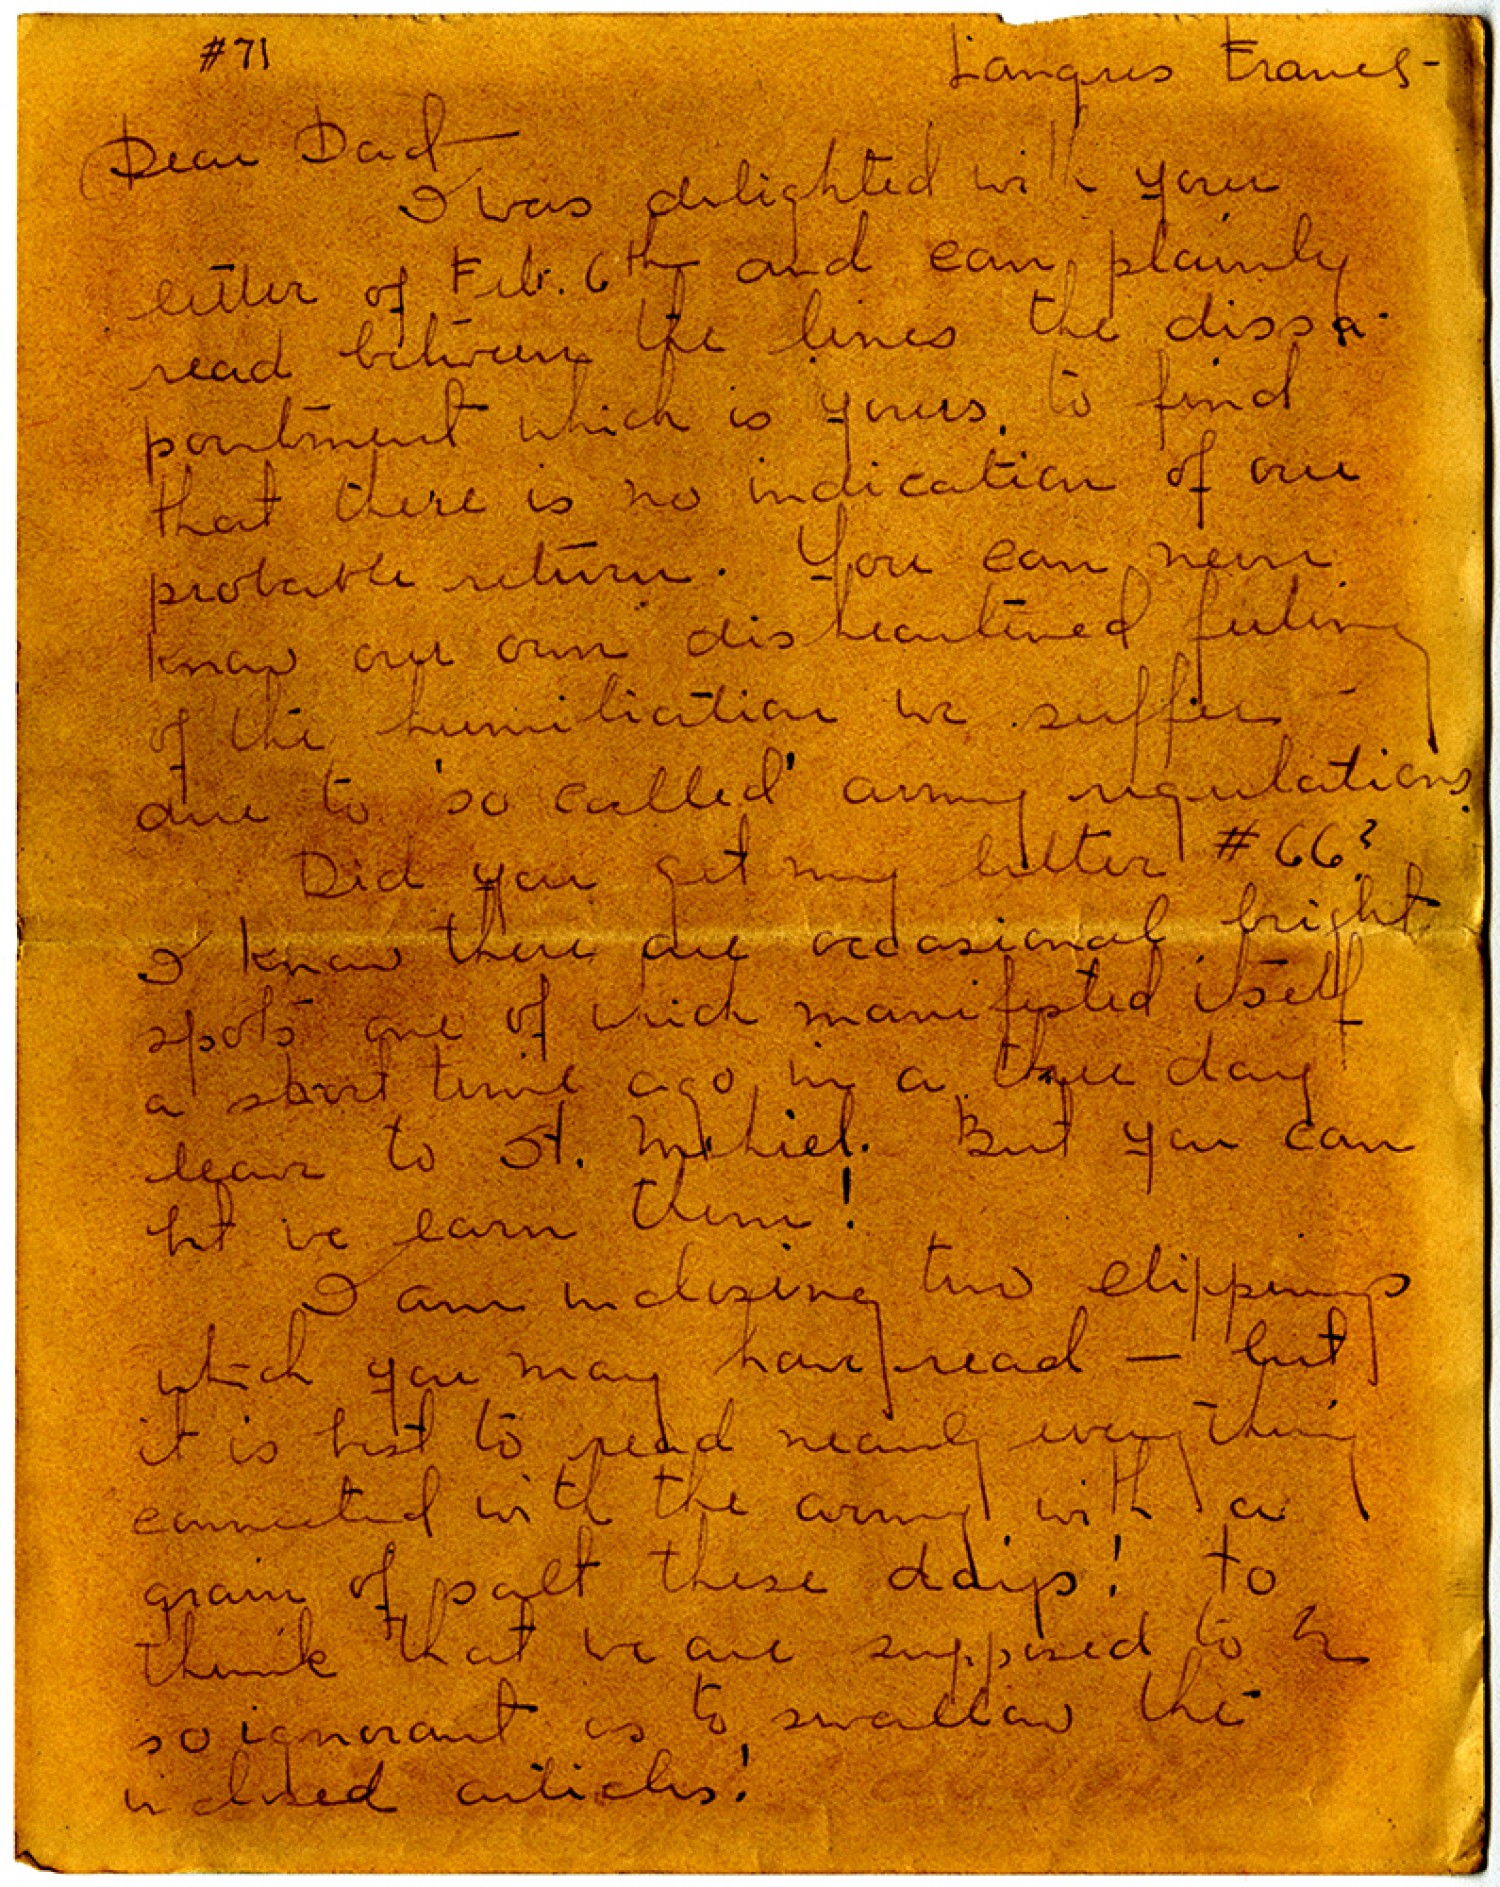 #71
Langres France-
Dear Dad
I was delighted with your
letter of Feb. 6th and can plainly
read between the lines the dissa-
pointment which is yours, to find
that there is no indication of our
probable return. You can never
know our own disheartened feeling
of the humiliation we suffer
due to 'so called' army regulations.
Did you get my letter #66?
I know there are occasional bright
spots one of which manifested itself
a short time ago, in a three day
leave to St. Mihiel. But you can
bet we earn them!
I am inclosing two clippings
which you may have read — but
it is best to read nearly everything
connected with the army with a
grain of salt these days! To
think that we are supposed to be
so ignorant as to swallow the
inclosed articles!